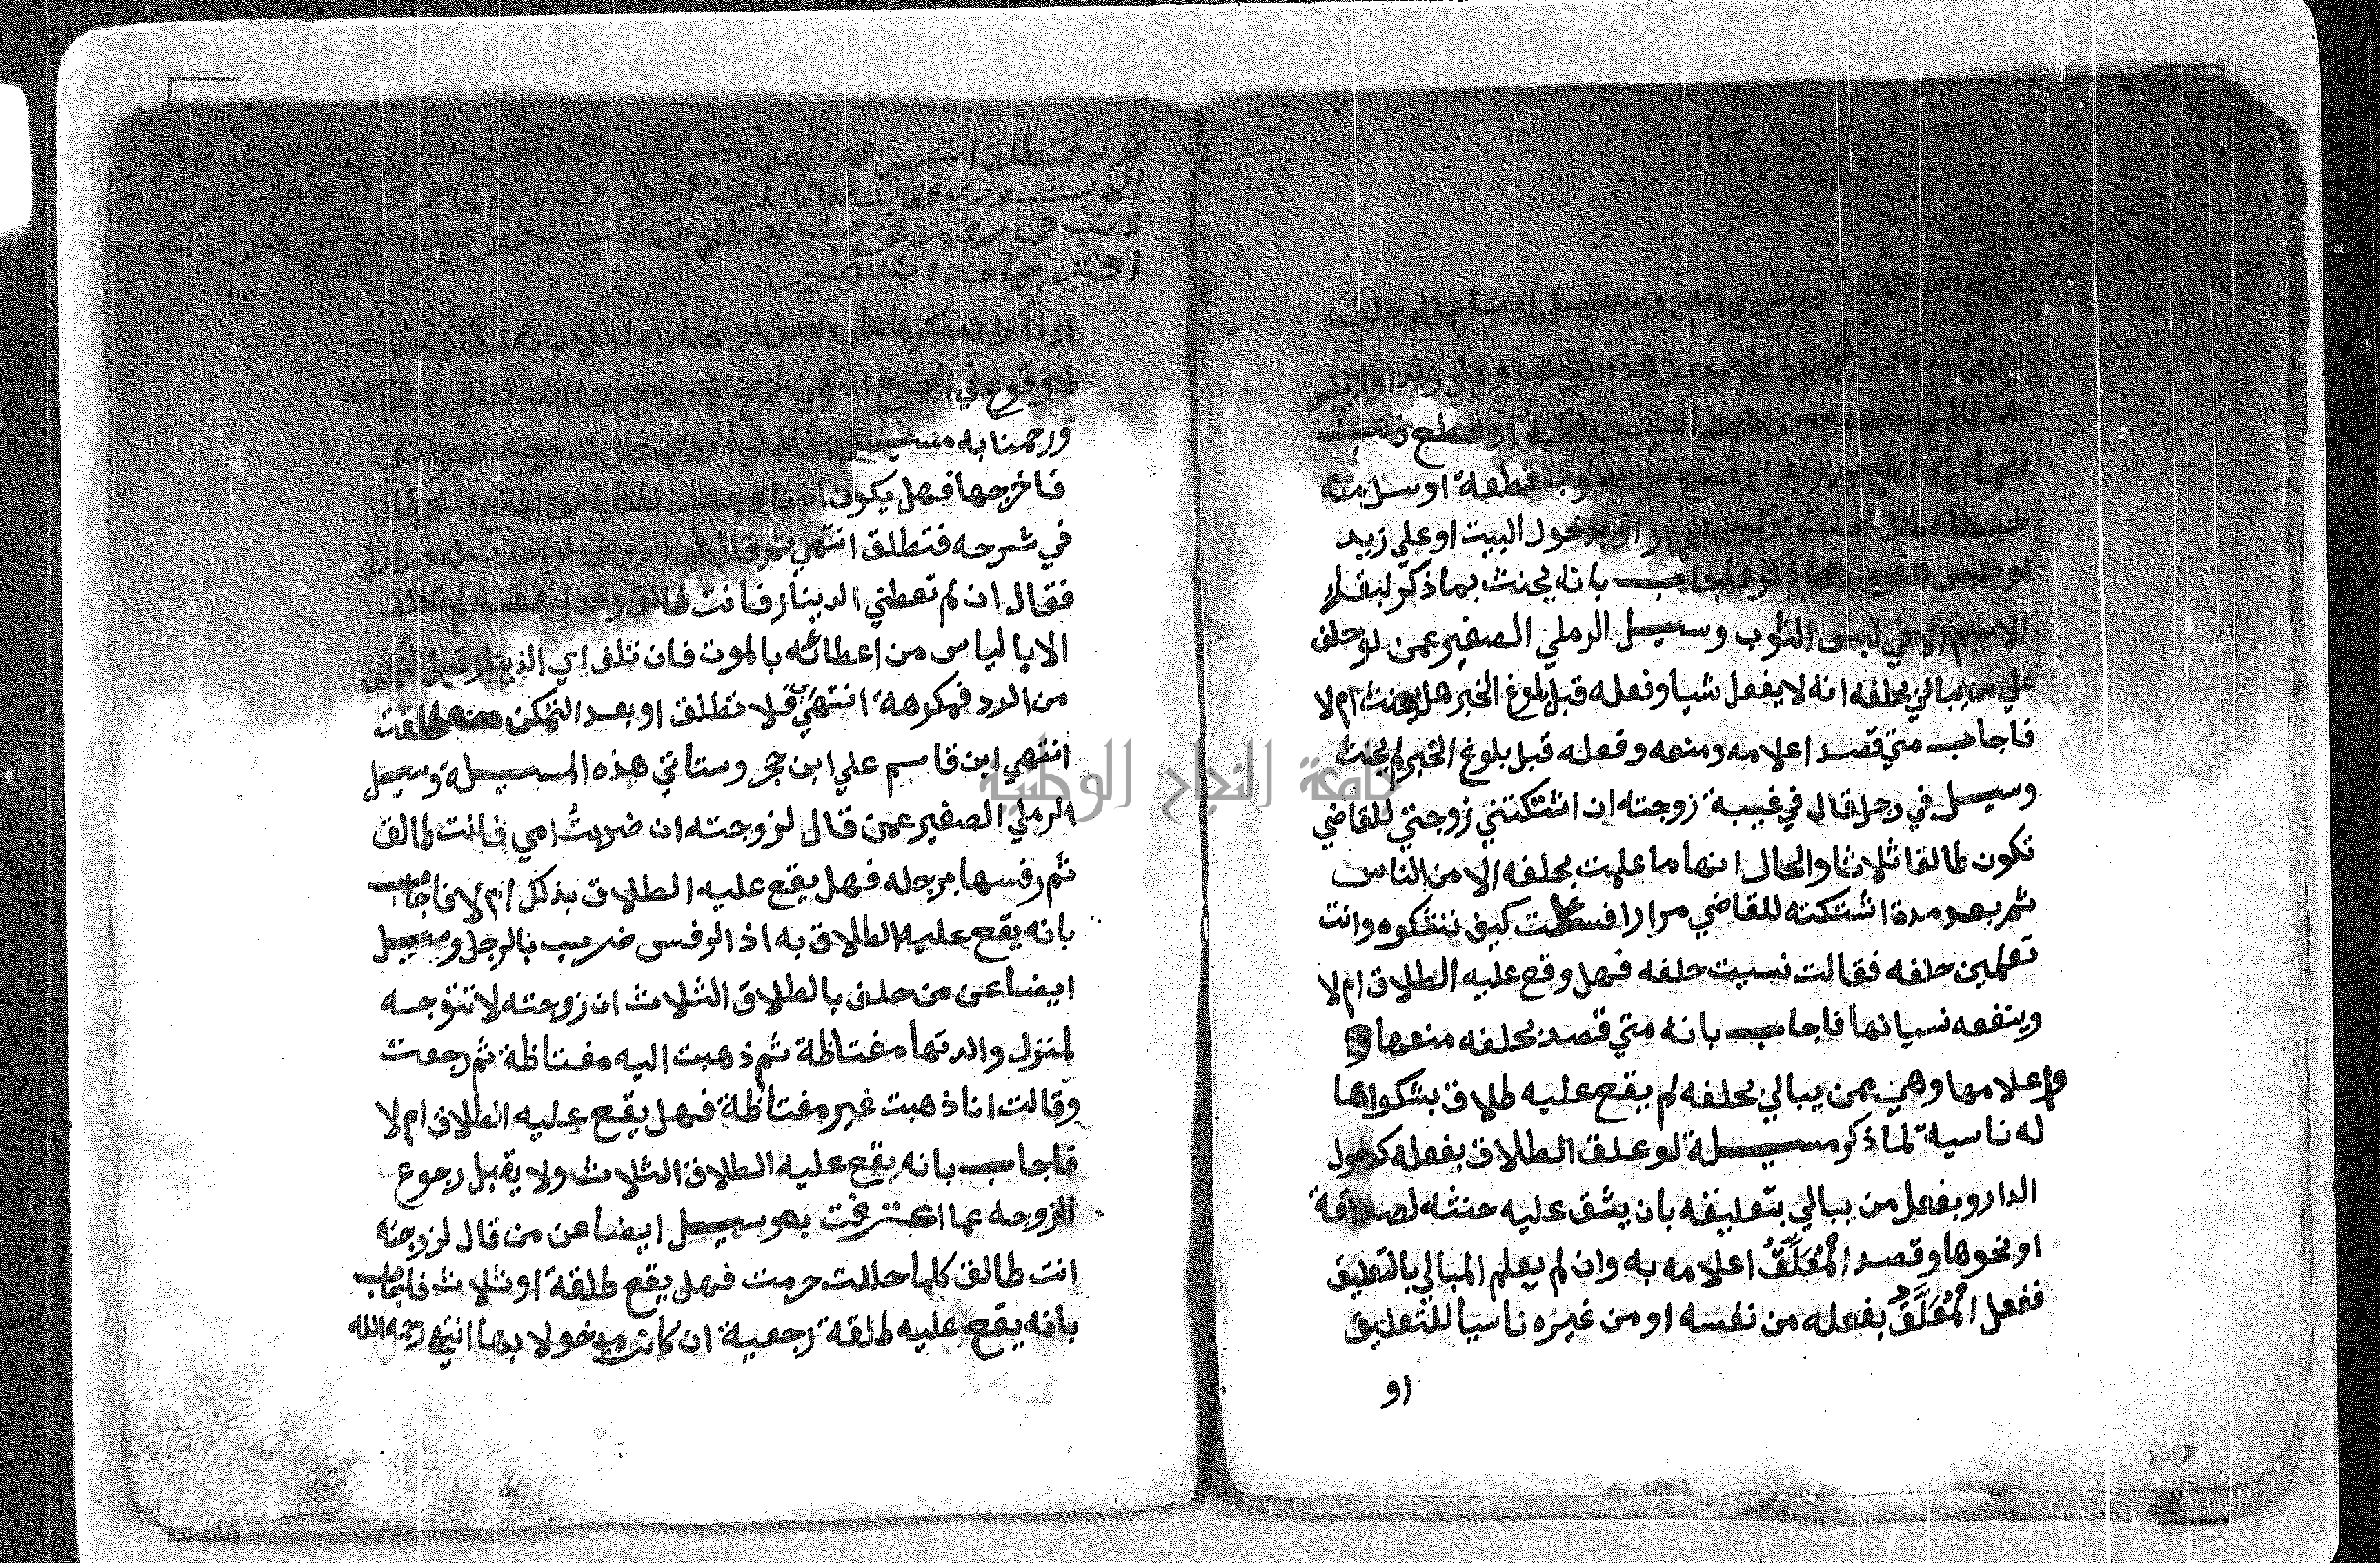 وليس بحاس وسيل ايضا عما لو حلف
لا يركب هذا الحمار او لا يدخل هذا البيت او علي زيد او لا يلبس
هذا الثوب فهدم من حايط البيت قطعة او قطع ذنب
الحمار او قطع يد زيد او قطع من الثوب قطعة او سل منه
خيطا فهل يحنث بركوب الحمار او بدخول البيت او علي زيد
او بلبس الثوب فاجاب بانه يحنث بما ذكر لبقاء
الاسم الا في لبس الثوب وسيل الرملي الصغير عمن لو حلف
علي من يبالي بحلفه انه لا يفعل شيا وفعله قبل بلوغ الخبر هل يحنث ام لا
فاجاب متي قصد اعلامه ومنعه وفعله قبل بلوغ الخبر لم يحنث
وسيل في رجل قال في غيبة زوجته ان اشتكتني زوجتي للقاضي
تكون طالقا ثلاثا والحال انها ما علمت بحلفه الا من الناس
ثم بعد مدة اشتكته للقاضي مرارا فسئلت كيف تشكوه وانت
تعلمين حلفه فقالت نسيت حلفه فهل وقع عليه الطلاق ام لا
وينفعه نسيانها فاجاب بانه متي قصد بحلفه منعها و
واعلامها وهي ممن يبالي بحلفه لم يقع عليه طلاق بشكواها
له ناسية لما ذكر مسيلة لو علق الطلاق بفعله كدخول
الدار وبفعل من يبالي بتعليقه بان يشق عليه حنثه لصداقة
او نحوها وقصد المُعَلِّقُ اعلامه به وان لم يعلم المبالي بالتعليق
ففعل المُعَلَّقُ بفعله من نفسه او من غيره ناسيا للتعليق
او
قوله فتطلق انتهي
فقالت له انا رايحة فقال لها
ذنب في رقبتي لا طلاق عليه
افتي جماعة انتهي
او ذاكرا له مكرها علي الفعل او مختارا جاهلا بانه المعلق عليه
لا وقوع في الجميع انتهي شيخ الاسلام رحمه الله تعالي رحمه الله
ورحمنا به مسيلة قال في الروض قال ان خرجت بغير اذني
فاخرجها فهل يكون اذنا وجهان القياس المنع انتهي قال
في شرحه فتطلق انتهي ثم قال في الروض لو اخذت له دينارا
فقال ان لم تعطني الدينار فانت طالق وقد انفقته لم تطلق
الا بالياس من اعطائه بالموت فان تلف اي الدينار قبل التمكن
من الرد فمكرهة انتهي فلا تطلق او بعد التمكن منه طلقت
انتهي ابن قاسم علي ابن حجر وستاتي هذه المسيلة وسيل
الرملي الصغير عمن قال لزوجته ان ضربت امي فانت طالق
ثم رفسها برجله فهل يقع عليه الطلاق بذلك ام لا فاجاب
بانه يقع عليه الطلاق به اذ الرفس ضرب بالرجل وسيل
ايضا عن من حلف بالطلاق الثلاث ان زوجته لا تتوجه
لمنزل والدتها مغتاظة ثم ذهبت اليه مغتاظة ثم رجعت
وقالت انا ذهبت غير مغتاظة فهل يقع عليه الطلاق ام لا
فاجاب بانه يقع عليه الطلاق الثلاث ولا يقبل رجوع
الزوجه عما اعترفت به وسيل ايضا عن من قال لزوجته
انت طالق كلما حللت حرمت فهل يقع طلقة او ثلاث فاجاب
بانه يقع عليه طلقة رجعية ان كانت مدخولا بها انتهي رحمه الله
جامعة النجاح الوطنية